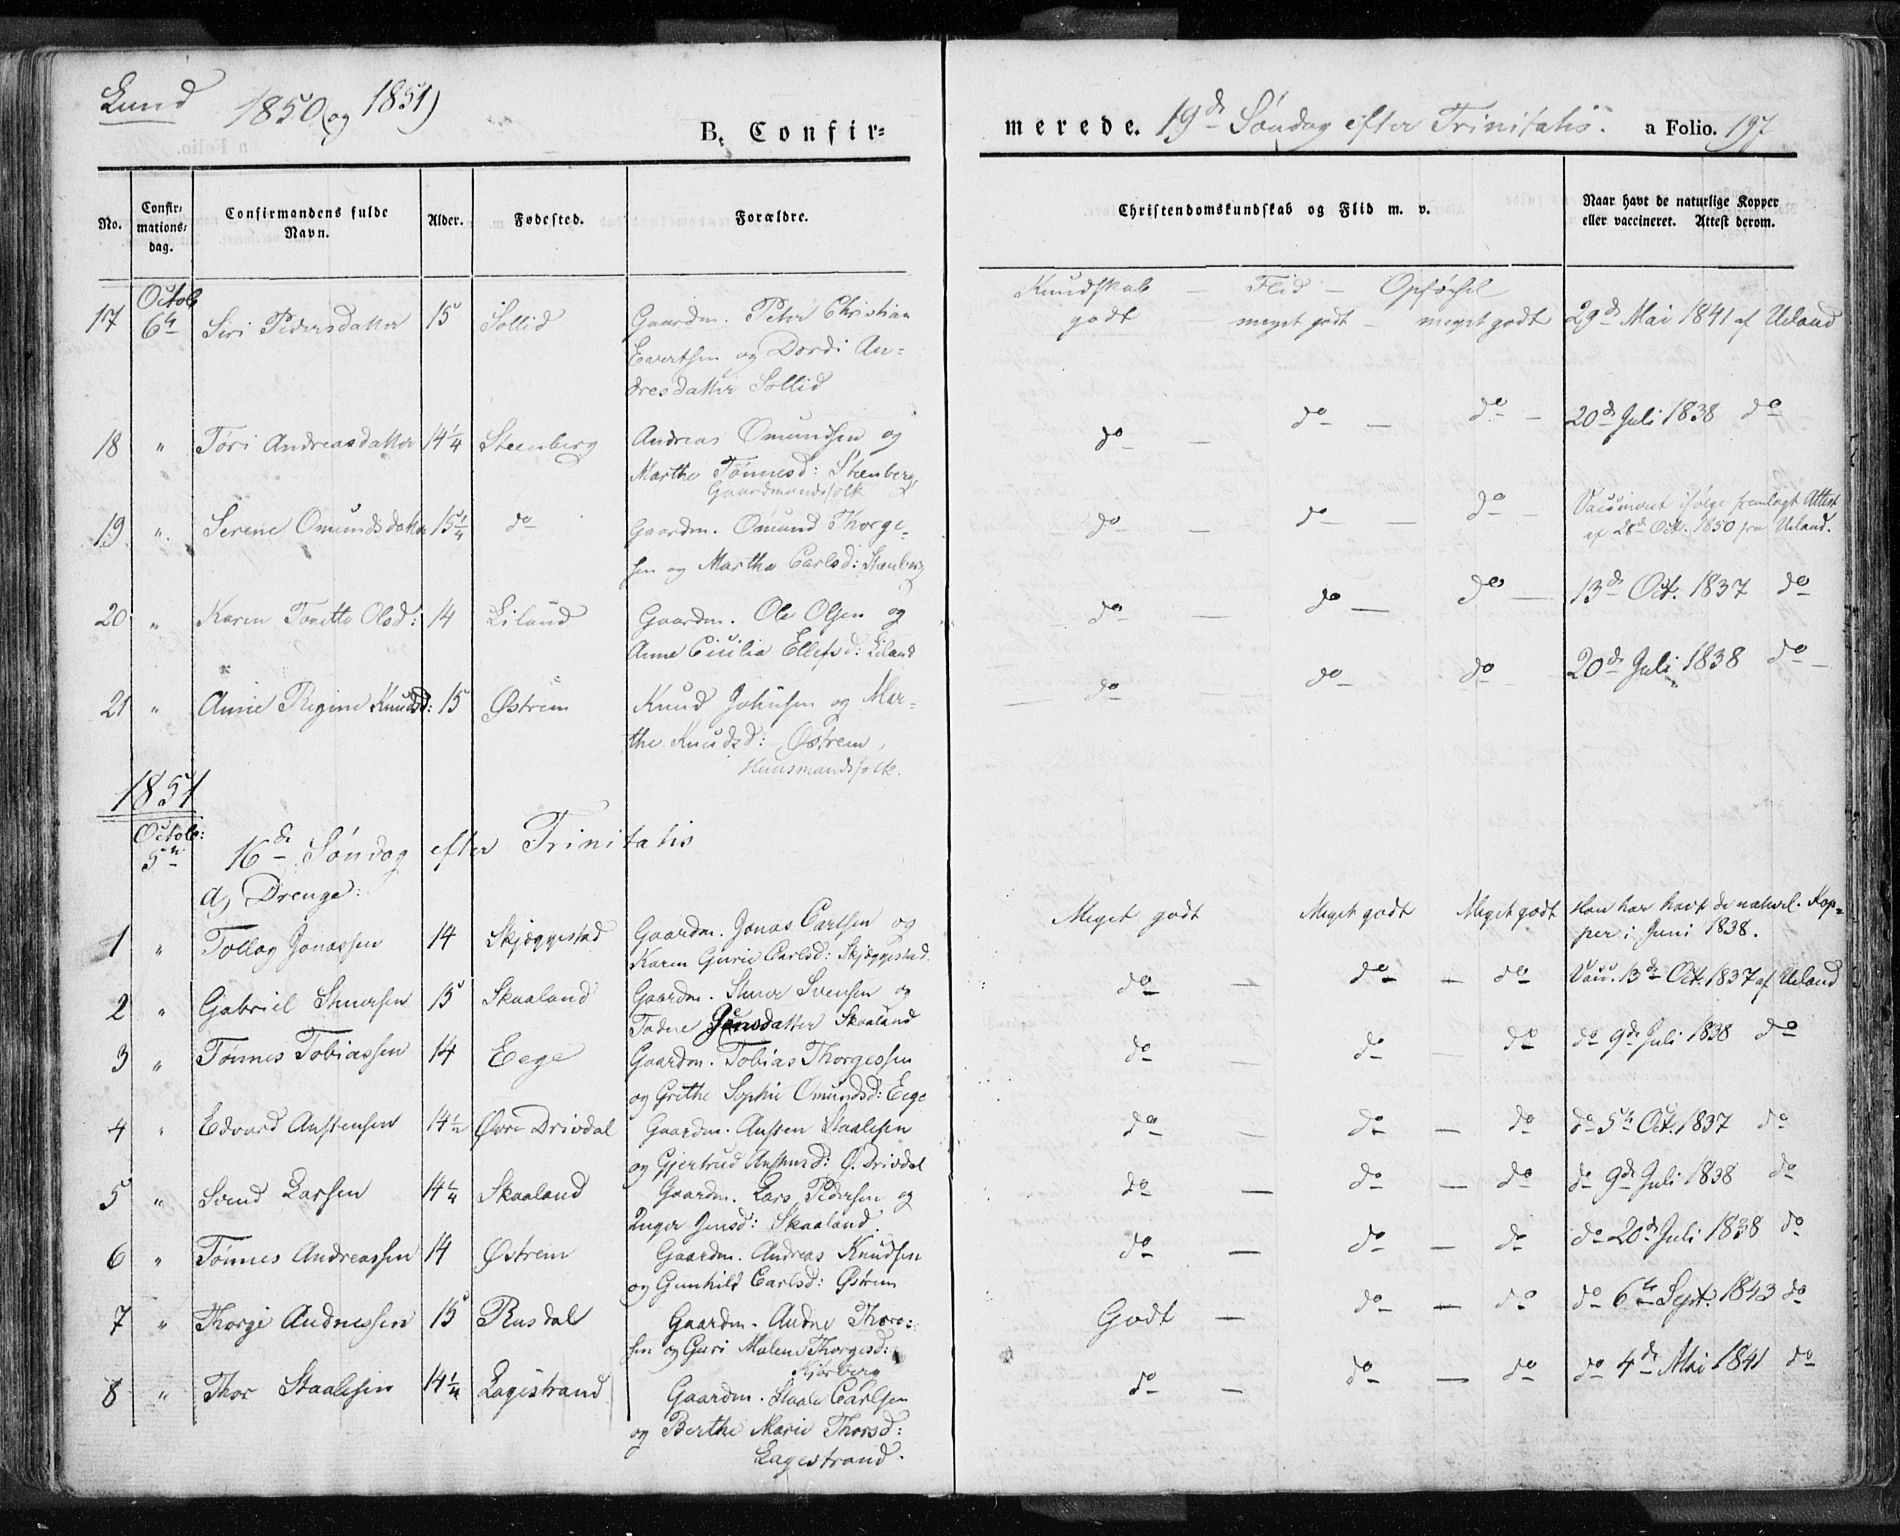 Lund 1850 (og 1851)
B. Confir=
merede. 19de Søndag efter Trinitatis. a Folio. 197
No. Confir=mations=dag. Confirmandens fulde Navn. Alder. Fødested. Forældre. Christendomskundskab og Flid m. v. Naar havt de naturlige Kopper eller vaccineret. Attest derom.
Octob Kundskab — Flid — Opførsel
17 6te Siri Pedersdatter 15 Sollid Gaardm. Peter Christian godt meget godt — meget godt 29de Mai 1841 af Ueland
Evertsen og Dordi An=
dresdatter Sollid
18 " Tøri Andreasdatter 14 1/4 Steenberg Andreas Omundsen og do — do — do — 20de Juli 1838 do
Marthe Tønnesd: Steenberg,
Gaardmandsfolk
19 " Serene Omundsdatter 15 1/4 do Gaardm. Omund Thorge= do — do — do — Vaccineret ifølge fremlagt Attest
sen og Martha Carlsd: Steenberg af 28de Oct. 1850 fra Ueland.
20 " Karen Tonette Olsd: 14 Eiland Gaardm. Ole Olsen og do — do — do — 13de Oct. 1837 do
Anne Cicilia Ellefsd: Eiland
21 " Anne Regine Knudsd: 15 Østrem Knud Johnsen og Mar= do do do 20de Juli 1838 do —
the Knudsd: Østrem,
Huusmandsfolk.
1851
Octob:
5te 16de Søndag efter Trinitatis
a) Drenge:
1 " Tollag Jonassen 14 Skjeggestad Gaardm. Jonas Carlsen og Meget godt Meget godt Meget godt Han har havt de naturl. Kop=
Karen Gurie Carlsd: Skjeggestad. per i Juni 1838.
2 " Gabriel Stuersen 15 Skaaland Gaardm. Stuer Svensen og do — do — do Vacc. 13de Oct. 1837 af Ueland
Tadne Jensdatter Skaaland
3 " Tønnes Tobiassen 14 Eege Gaardm. Tobias Thorgessen do — do — do do 9de Juli 1838 do
og Grethe Sophie Omundsd: Eege
4 " Edvard Anstensen 14 1/2 Øvre Drivdal Gaardm. Ansten Staalesen do — do — do do 5te Oct. 1837 do
og Gjertrud Ø. Drivdal
5 " Svend Larsen 14 1/4 Skaaland Gaardm. Lars Pedersen og do — do — do do 9de Juli 1838 do
Inger Jensd: Skaaland.
6 " Tønnes Andreassen 14 Østrem Gaardm. Andreas Knudsen do — do — do do 20de Juli 1838 do
og Gunhild Carlsd: Østrem
7 " Thorge Audnessen 15 Rusdal Gaardm. Audne Thore= Godt — do — do do 6te Sept. 1843 do
sen og Guri Malene Thorgesd:
8 " Thor Staalesen 14 1/4 Eagestrand Gaardm. Staale Carlsen do — do — do do 4de Mai 1841 do
og Berthe Marie Thorsd:
Eagestrand.